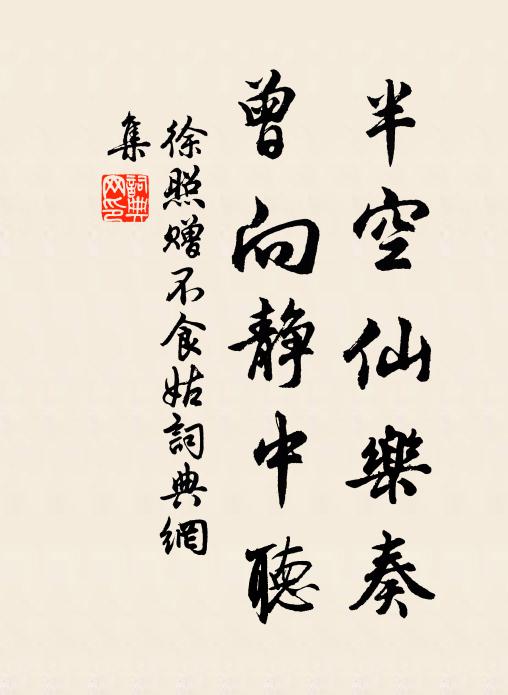 半空仙樂奏
曾向靜中聽
徐照赠不食姑詞典網
集
詞典
网印